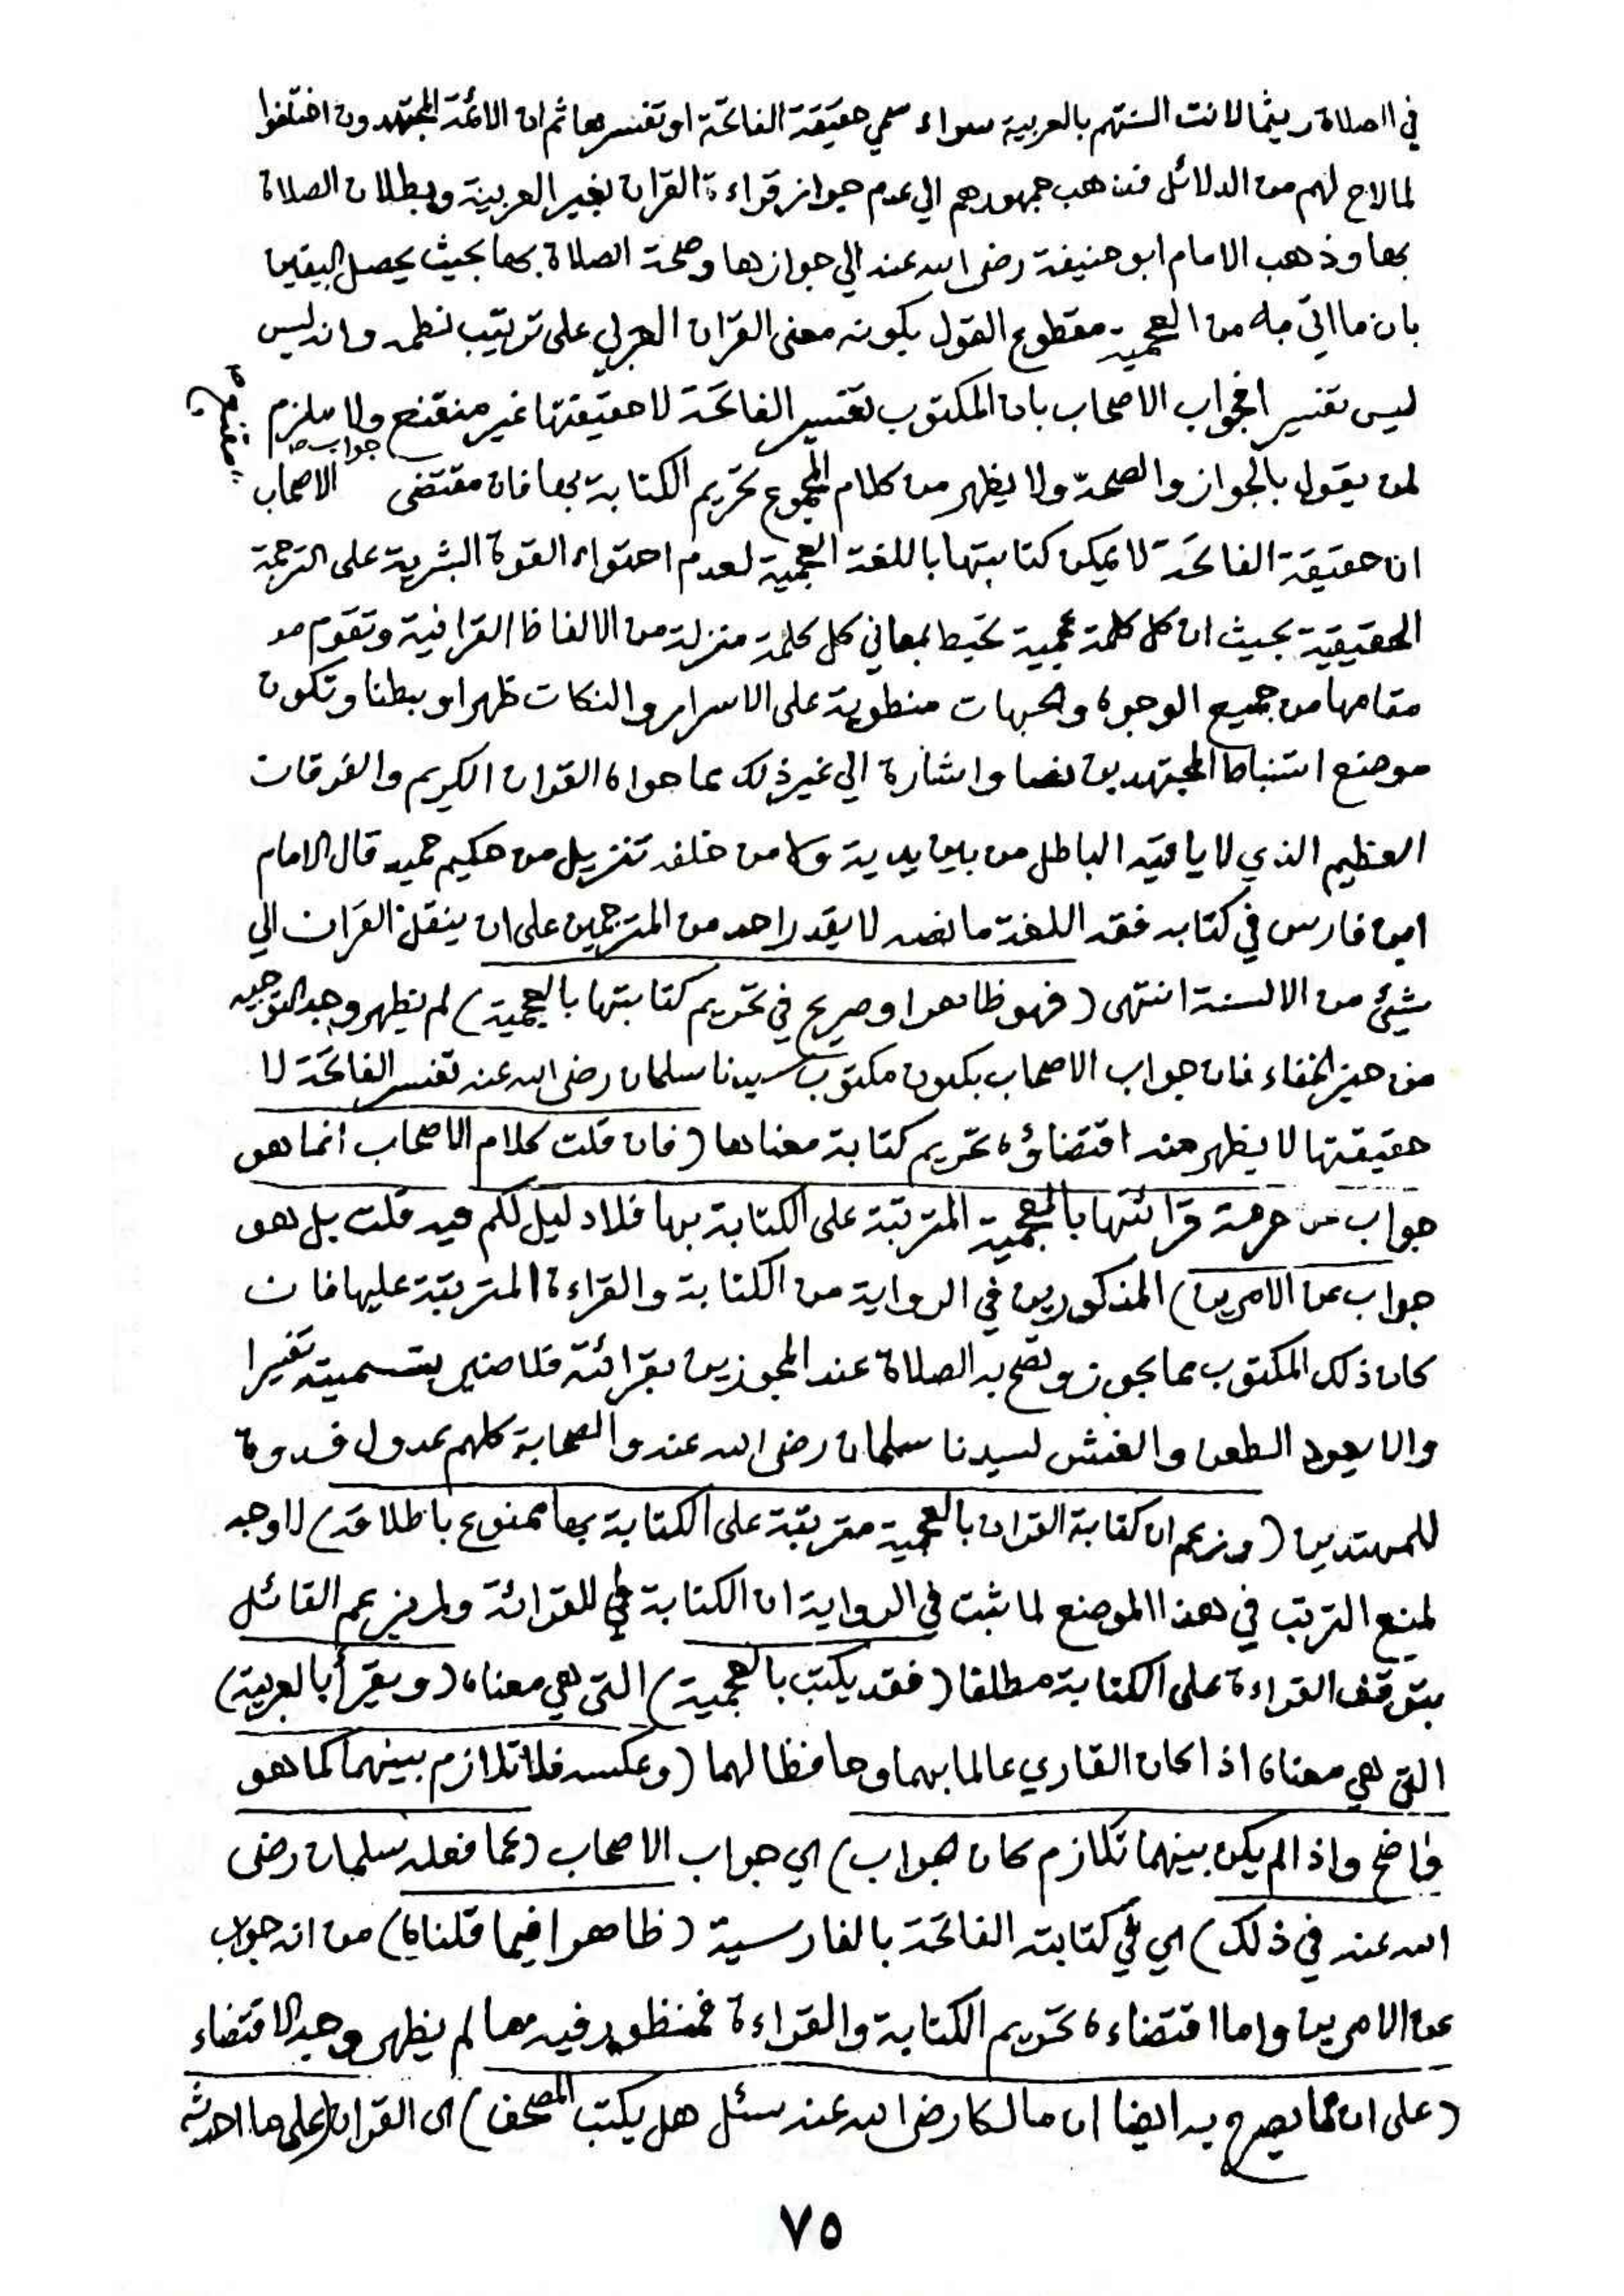 في الصلاة ريثما لانت السنتهم بالعربية سواء سمي حقيقة الفاتحة او تفسيرها ثم ان الائمة المجتهدون اختلفوا
لما لاح لهم من الدلائل فذهب جمهورهم الي عدم جواز قراءة القران بغير العربية وبطلان الصلاة
بها وذهب الامام ابو حنيفة رضى الله عنه الي جوازها وصحة الصلاة بها بحيث يحصل اليقين
بان ما اتي به من العجمية مقطوع القول بكونه معنى القران العربي على ترتيب نظمه وانه ليس
ليس تفسير افجواب الاصحاب بان المكتوب تفسير الفاتحة لا حقيقتها غير منقنع ولا ملزم
لمن يقول بالجواز والصحة ولا يظهر من كلام المجموع تحريم الكتابة بها فان مقتضى جواب الاصحاب
ان حقيقة الفاتحة لا يمكن كتابتها باللغة العجمية لعدم احتواء القوة البشرية على الترجمة
الحقيقية بحيث ان كل كلمة عجمية تحيط بمعاني كل كلمة منزلة من الالفاظ القرانية وتقوم
مقامها من جميع الوجوه والجهات منطوية على الاسرار والنكات ظهرا وبطنا وتكون
موضع استنباط المجتهدين نصا واشارة الي غير ذلك مما حواه القران الكريم والفرقان
العظيم الذي لا ياتيه الباطل من بين يديه ولا من خلفه تنزيل من حكيم حميد قال الامام
ابن فارس في كتابه فقه اللغة ما نصه لا يقدر احد من المترجمين على ان ينقل القران الي
شيئ من الالسنة انتهى (فهو ظاهر او صريح في تحريم كتابتها بالعجمية) لم يظهر وجه التوجيه
من حيز الخفاء فان جواب الاصحاب بكون مكتوب سيدنا سلمان رضى الله عنه تفسير الفاتحة لا
حقيقتها لا يظهر منه اقتضاؤه تحريم كتابة معناها (فان قلت كلام الاصحاب انما هو
جواب عن حرمة قرائتها بالعجمية المترتبة على الكتابة بها فلا دليل لكم فيه قلت بل هو
جواب عن الامرين) المذكورين في الرواية من الكتابة والقراءة المترتبة عليها فان
كان ذلك المكتوب مما يجوز وتصح به الصلاة عند المجوزين بقرائته فلا ضير بتسميته تفسيرا
والا يعود الطعن والغش لسيدنا سلمان رضى الله عنه والصحابة كلهم عدول قدوة
للمهتدين (وزعم ان كتابة القران بالعجمية مترتبة على الكتابة بها ممنوع باطلاقه) لا وجه
لمنع الترتب في هذا الموضع لما ثبت في الرواية ان الكتابة هي للقرائة ولم يزعم القائل
بتوقف القراءة على الكتابة مطلقا (فقد يكتب بالعجمية) التي هي معناه (ويقرأ بالعربية)
التي هي معناه اذا كان القاري عالما بهما وحافظا لهما (وعكسه فلا تلازم بينهما كما هو
واضح واذا لم يكن بينهما تلازم كان جواب) اي جواب الاصحاب (عما فعله سلمان رضى
الله عنه في ذلك) اي في كتابته الفاتحة بالفارسية (ظاهرا فيما قلناه) من انه جواب
عن الامرين واما اقتضاءه تحريم الكتابة والقراءة فمنظور فيه مما لم يظهر وجه الاقتضاء
(على ان مما يصرح به ايضا ان مالكا رضى الله عنه سئل هل يكتب المصحف) اى القران (على ما احدثه
٧٥